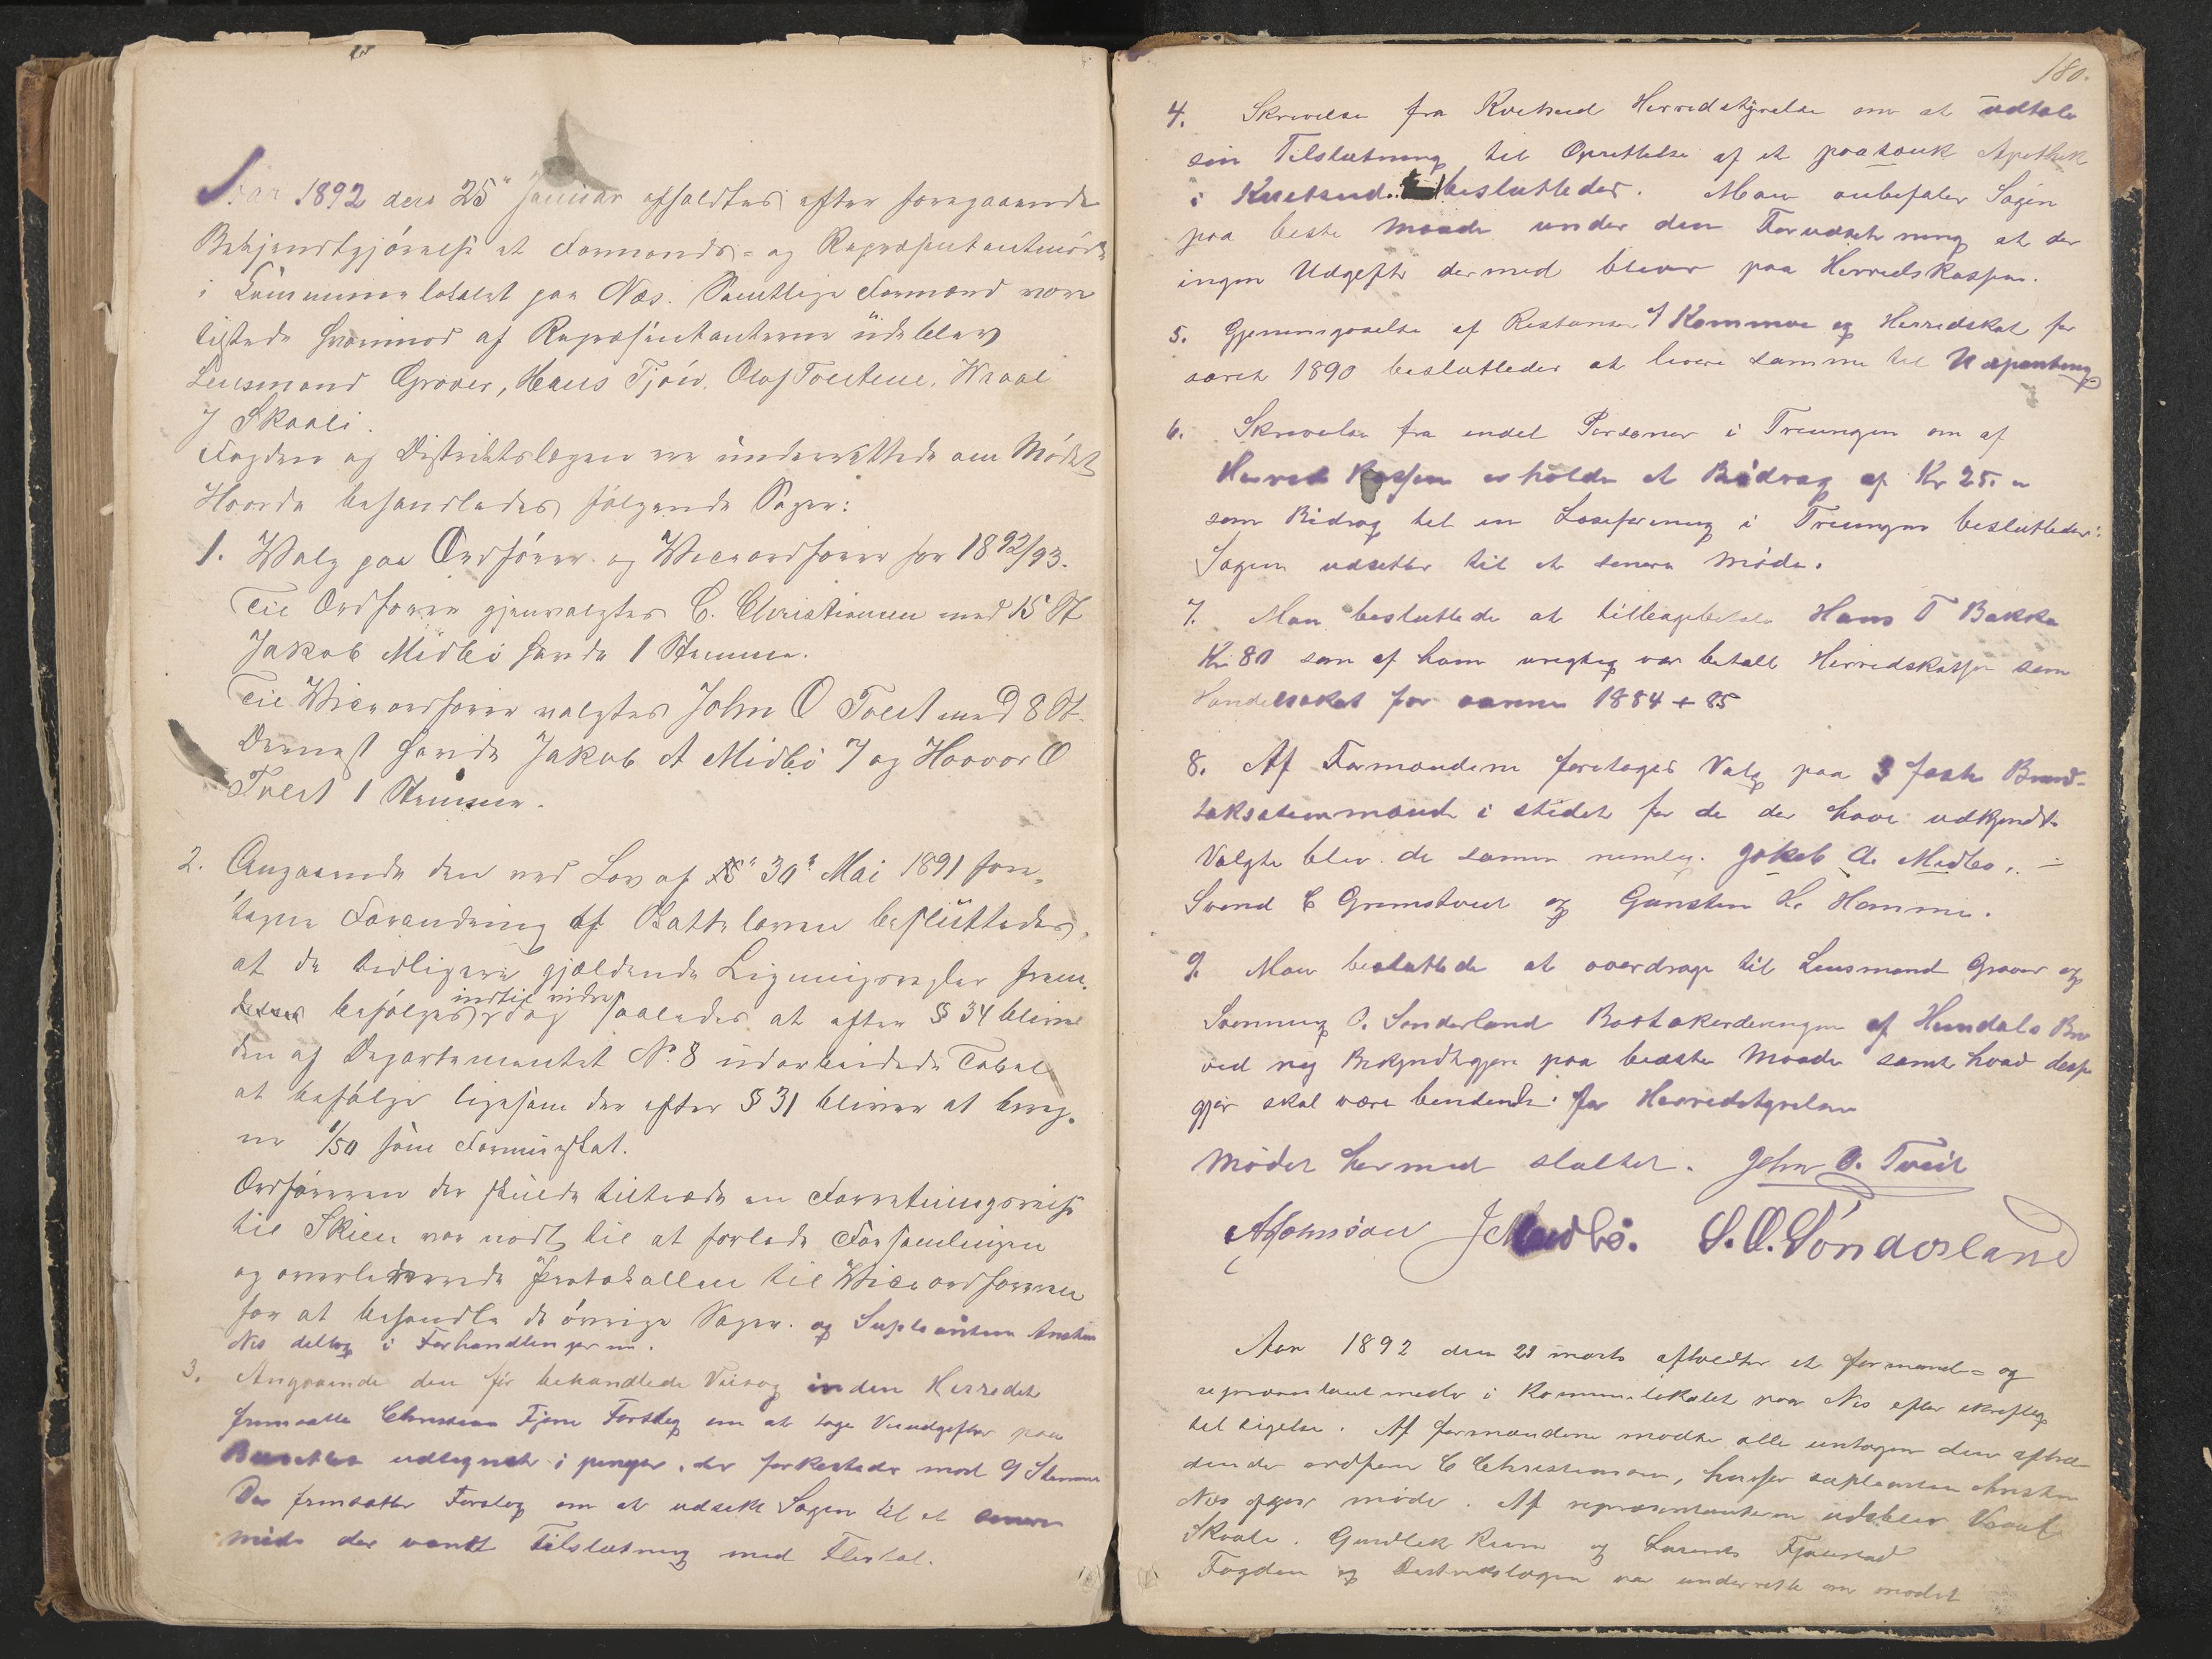 Aar 1892 den 25" Januar afholdtes efter foregaaende
Bekjendtgjørelse et Formands- og Repræsentantmøde
i Communelokalet paa Næs. Samtlige Formænd vare
tilstede hvorimod af Repræsentanterne üdeblev
Lensmand Grover, Hans Tjøn, Olaf Tveitene, Wraal
J Skaali.
Fogden og Distriktslægen var ünderrettede om Mødet
Hvorda behandledes følgende Sager:
1. Walg paa Ordfører og Viceordfører for 1892/93.
Til Ordfører gjenvalgtes C. Christiansen med 15 St
Jakob Midbø havde 1 Stemme.
Til Viceordfører valgtes John O Tveit med 8 St.
Dernest havde Jakob A Midbø 7 og Haavor O
Tveit 1 Stemme.
2. Angaaende den ved Lov af 30" Mai 1891 fore-
tagne Forandring af Skatteloven beslüttedes,
at de tidligere gjældende Ligningsregler frem-
deles befølges indtil videre dog saaledes at efter § 34 bliver
den af Departementet No. 8 üdarbeidede Tabel
at befølge ligesom der efter § 31 bliver at bereg-
ne 1/50 som Formueskat.
Ordføreren der skülde tiltræde en Forretningsreise
til Skien var nødt til at forlade Forsamlingen
og overleverede Protokollen til Viceordføreren
for at behandle de øvrige Sager. og Suplianten Ansten
Nes deltog i Forhandlingerne.
3. Angaaende den før behandlede Veisag inden Herredet
fremsatte Christian Fjone Forslag om at tage Veiudgifter paa
Budsettet udlignet i penger, der forkastedes mod 9 Stemmer
Der fremsattes Forslag om at udsette Sagen til et senere
møde der vandt Tilslutning med Flertal.
180.
4. Skrivelse fra Kvitseid Herredstyrelse om at udtale
sin Tilslutning til Oprettelse af et paatænk Apothek
i Kvitseid. beslutteder. Man anbefaler Sagen
paa beste Maade under den Forudsetning at der
ingen Udgifter dermed bliver paa Herredskassen.
5. Gjennemgaaelse af Restanser i Kommune og Herredskat for
aaret 1890 beslutteder at levere samme til Udpantning
6. Skrivelse fra endel Personer i Treungen om af
Herredkassen erholde et Bidrag af Kr 25. "
som Bidrag til en Læseforening i Treungen beslutteder:
Sagen udsetter til et senere Møde.
7. Man besluttede at tilbagebetale Hans T Bakka
Kr 80 som af ham urigtig var betalt Herredskassen som
Handelsskat for aarene 1884 + 85
8. Af Formændene foretages Valg paa 3 faste Brand-
taksationsmænd i stedet for de der have udtjendt.
Valgte blev de samme nemlig. Jakob A. Midbø,
Svend C Gremstveit og Gunsten H. Homme.
9. Man besluttede at overdrage til Lensmand Grover og
Svenning O. Sønderland Bortakorderingen af Hundals Bro
ved ny Bekjendtgjør paa bedste Maade samt hvad disse
gjør skal være bindende for Herredstyrelsen
Mødet hermed sluttet. John O. Tveit
A Johnsøn J A Midbø. S. O. Sønderland
Aar 1892 den 29 marts afholdtes et formand- og
repræsentantmøde i Kommunelokalet paa Nes efter skriftlig
tilsigelse. Af formændene mødte alle untagen den aftræ-
dende ordfører C Christiansen, hvorfor suplianten Ansten
Nes afgav møde. Af repræsentanterne udeblev Vraal
Skaali. Gundlek Ruen og Laurents Fjalestad
Fogden og Distriktslægen var underrette om mødet